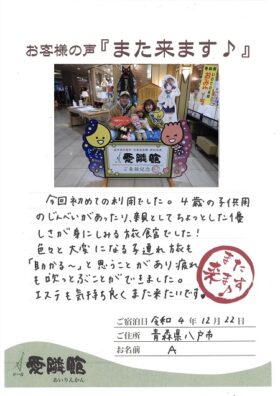 お客様の声『また来ます♪』
愛隣館
ご来館記念
今回初めての利用でした。4歳の子供用
のじんべいがあったり、親としてちょっとした優
しさが身にしみる旅館でした!
色々と大変になる子連れ旅も
「助かる~」と思うことがあり疲れ
も吹っとぶことができました。
エステも気持ち良くまた来たいです。
また来ます♪
ご宿泊日 令和4年12月22日
ご住所 青森県八戸市
お名前 A
愛隣館
あいりんかん